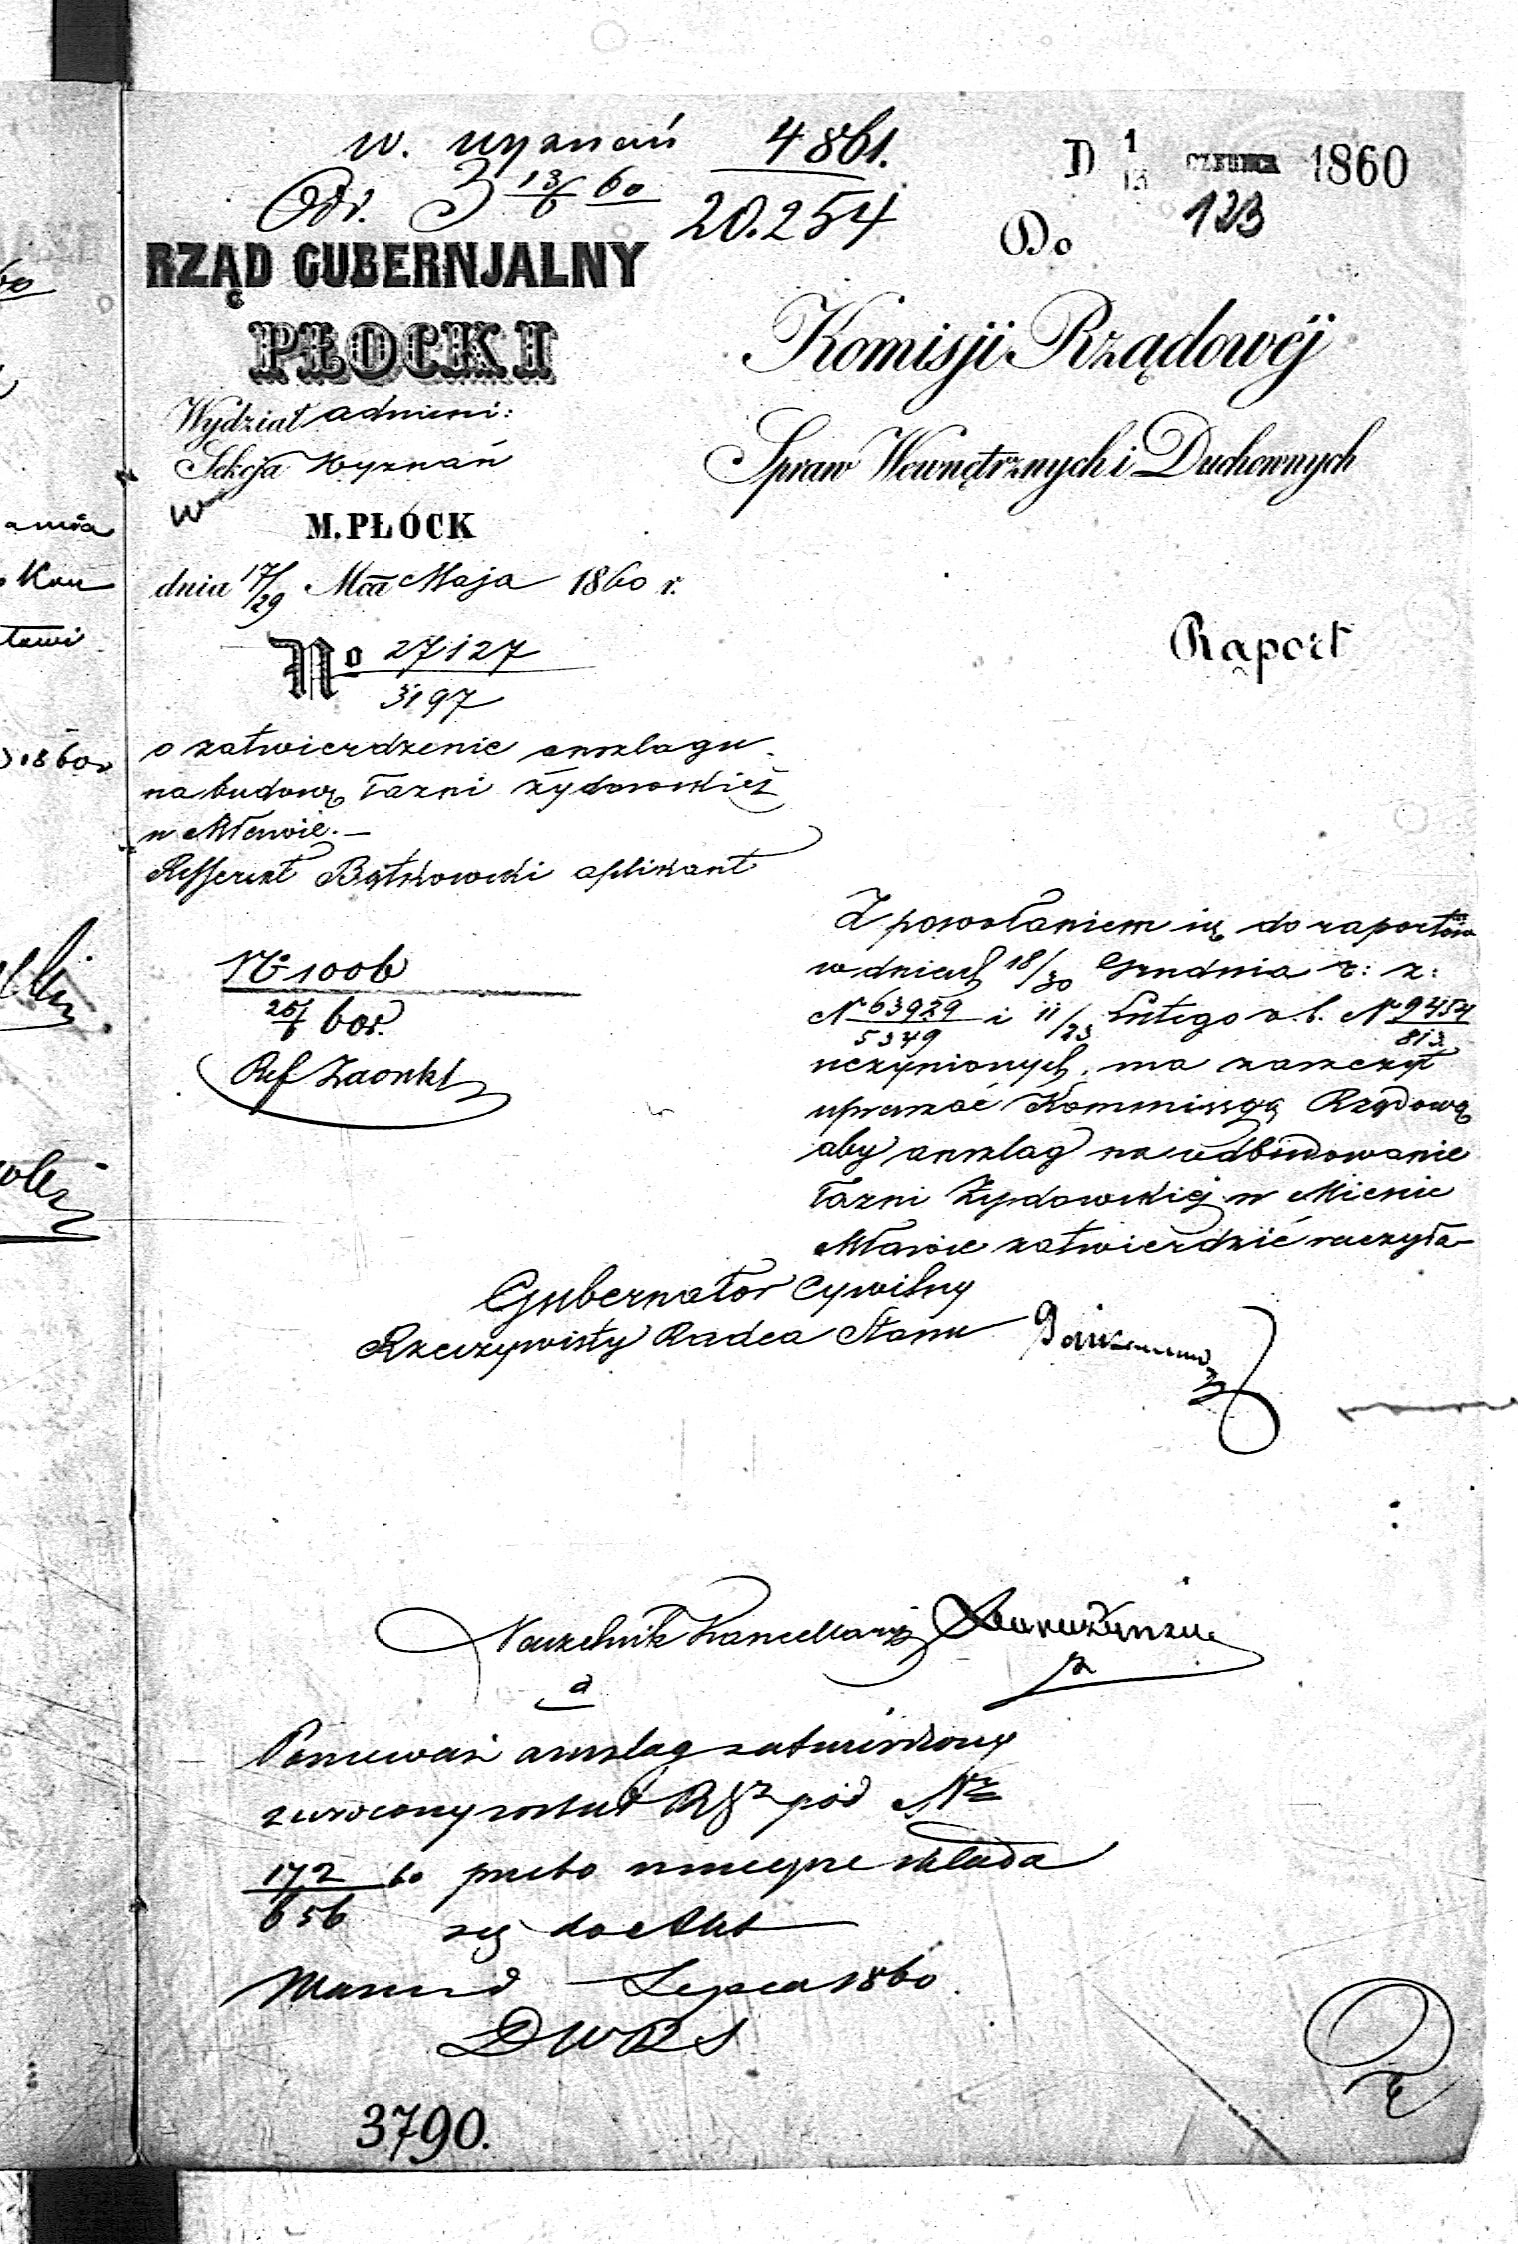 w. wyznań 4861.
Odr. 3 13/6 60 20.254
D 1/13 CZERWCA 1860
123
RZĄD GUBERNJALNY
PŁOCKI
Wydział admini:
Sekcja Wyznań
M. PŁOCK
dnia 17/29 Mca Maja 1860 r.
No 27127
3197
o zatwierdzenie anszlagu
na budowę łazni żydowskiej
w Mławie. —
Refferent Bątkowski aplikant
No 1006
25/6 60r.
Ref
Do
Komisji Rządowéj
Spraw Wewnętrznych i Duchownych
Raport
Z powołaniem się do raportów
w dniach 18/30 Grudnia r: z:
No 63929/5349 i 11/23 Lutego r. b. No 9454/813
uczynionych, ma zaszczyt
upraszać Kommissyą Rządową
aby anszlag na odbudowanie
łazni Żydowskiej w Mieście
Mławie zatwierdzić raczyła
Gubernator Cywilny
Rzeczywisty Radca Stanu
Naczelnik Kancellaryi
Ponieważ anszlag zatwierdzony
zwrócony został pod Nr
172/656 60 przeto niniejsze składa
się do Akt
Lipca 1860.
3790.